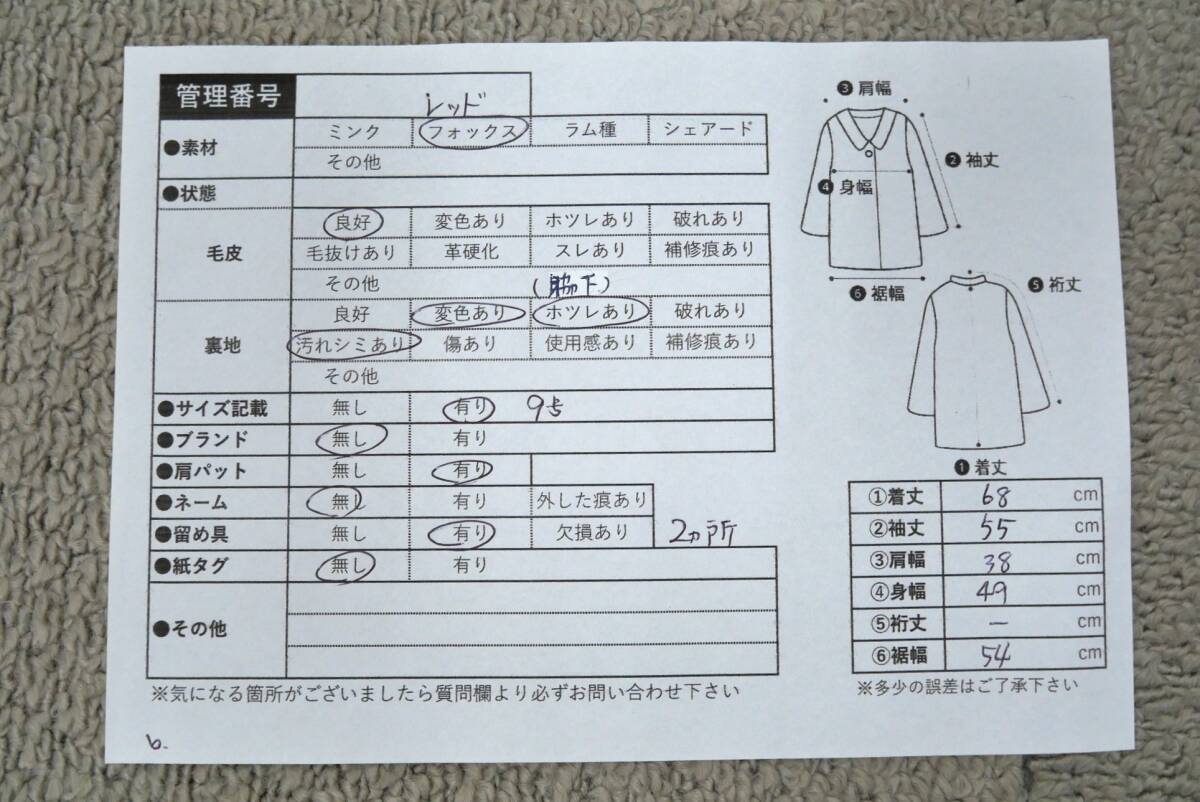 管理番号
レッド
●素材 ミンク フォックス ラム種 シェアード
その他
●状態
毛皮 良好 変色あり ホツレあり 破れあり
毛抜けあり 革硬化 スレあり 補修痕あり
その他 (脇下)
裏地 良好 変色あり ホツレあり 破れあり
汚れシミあり 傷あり 使用感あり 補修痕あり
その他
●サイズ記載 無し 有り 9号
●ブランド 無し 有り
●肩パット 無し 有り
●ネーム 無し 有り 外した痕あり
●留め具 無し 有り 欠損あり 2ヵ所
●紙タグ 無し 有り
●その他
※気になる箇所がございましたら質問欄より必ずお問い合わせ下さい
6.
❸肩幅
❷袖丈
❹身幅
❻裄幅
❺裄丈
❶着丈
①着丈 68 cm
②袖丈 55 cm
③肩幅 38 cm
④身幅 49 cm
⑤裄丈 ー cm
⑥裾幅 54 cm
※多少の誤差はご了承下さい